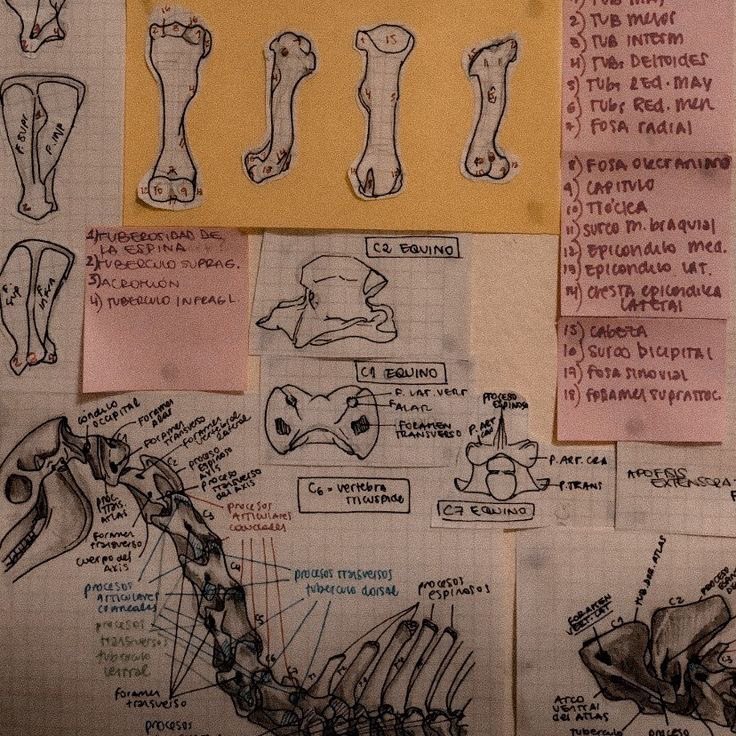 1) TUB MAY
2) TUB MENOR
3) TUB INTERM
4) TUBs DELTOIDES
5) TUBs RED. MAY
6) TUBs RED. MEN
7) FOSA RADIAL
8) FOSA OLECRANIANA
9) CAPITULO
10) TROCLEA
11) SURCO M. BRAQUIAL
12) EPICONDULO MED.
13) EPICONDILO LAT.
14) CRESTA EPICONDILEA
LATERAL
15) CABEZA
16) SURCO BICIPITAL
17) FOSA SINOVIAL
18) FORAMEN SUPRATROC.
F. SUPR
F. INF
1) TUBEROSIDAD DE
LA ESPINA
2) TUBERCULO SUPRAG.
3) ACROMION
4) TUBERCULO INFRAGL
C2 EQUINO
C1 EQUINO
F. LAT. VERT
F ALAR
FORAMEN
TRANSVERSO
C6 = VERTEBRA
TRICUSPIDE
PROCESO
ESPINOSO
P. ART
P. ART. CRA
P. TRANS
C7 EQUINO
APOFISIS
EXTENSORA
CONDULO
OCCIPITAL
FORAMEN
ALAR
FORAMEN
TRANSVERSO
FORAMEN
VERTEBRAL
LATERAL
PROCESO
ESPINOSO
AXIS
PROCESO
TRANSVERSO
DEL AXIS
PROC.
TRANS.
ATLAS
FORAMEN
TRANSVERSO
CUERPO DEL
AXIS
C1
C2
C3
C4
C5
PROCESOS
ARTICULARES
CAUDALES
PROCESOS
ARTICULARES
CRANEALES
PROCESOS TRANSVERSOS
TUBERCULO DORSAL
PROCESOS
ESPINOSOS
PROCESOS
TRANSVERSOS
TUBERCULO
VENTRAL
FORAMEN
TRANSVERSO
PROCESOS
FORAMEN
VERT. LAT.
TUB. DOR. ATLAS
PROCESO
C1
C2
C3
ARCO
VENTRAL
DEL ATLAS
TUBERCULO
PROCESO